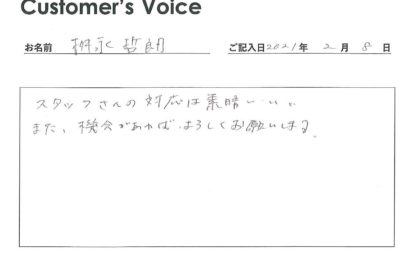 Customer's Voice
お名前 桝永 哲朗 ご記入日2021年 2月 8日
スタッフさんの対応は素晴しいい。
また、機会があれば よろしくお願いします。